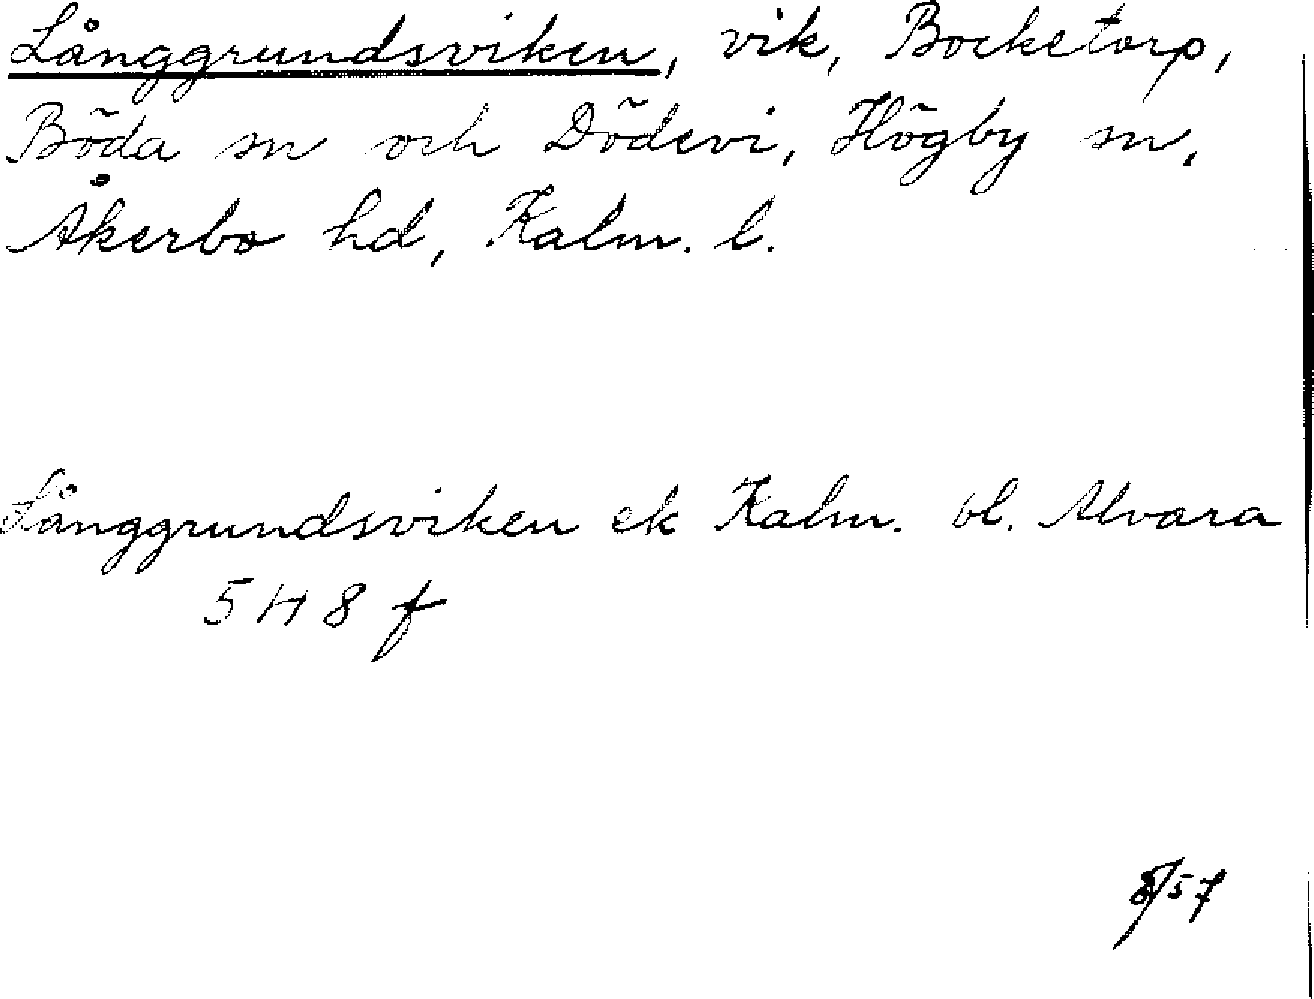 Långgrundsviken, vik, Bocketorp,
Böda sn och Dödevi, Högby sn,
Åkerbo hd, Kalm. l.
Långgrundsviken ek Kalm. bl. Alvara
5 H 8 f
8/57